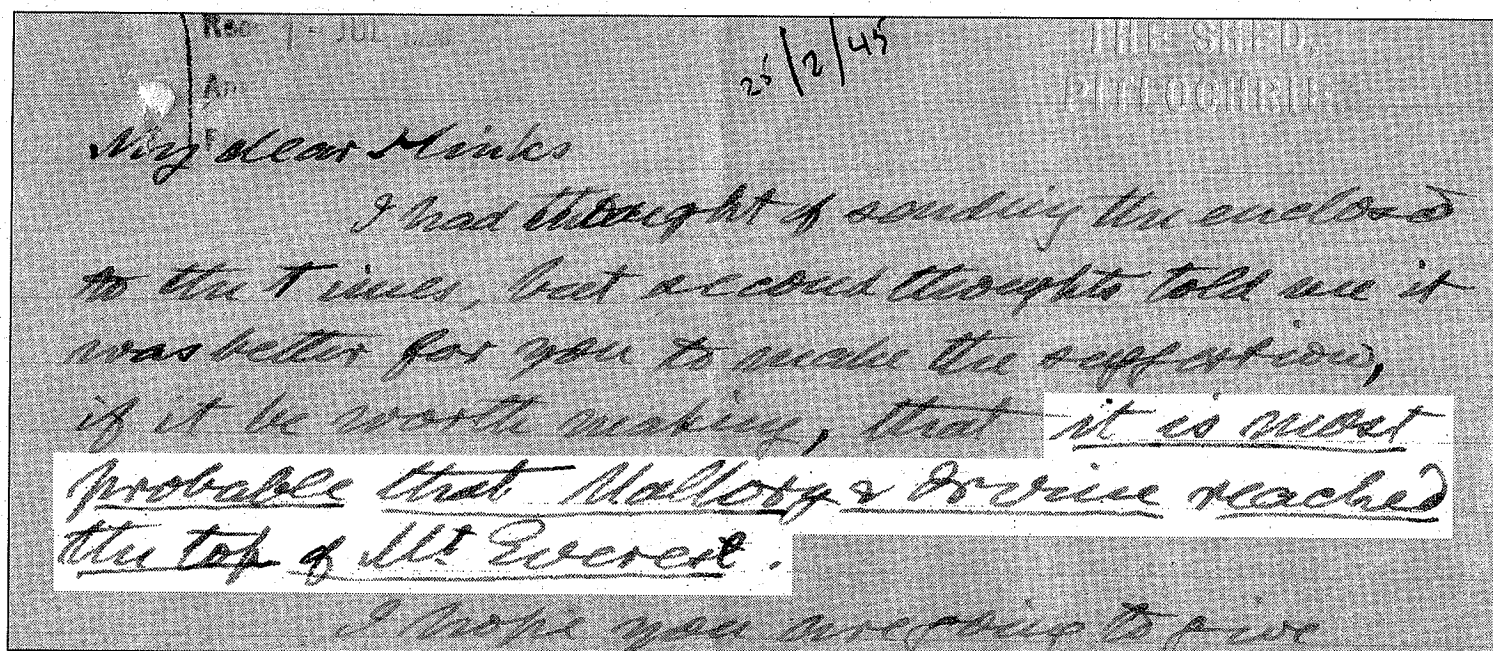 JUL
25/2/45
THE SHED,
PITLOCHRIE
My dear Hinks
I had thought of sending the enclosed
to the Times, but second thoughts told me it
was better for you to make the suggestion,
if it be worth making, that it is most
probable that Mallory & Irvine reached
the top of Mt Everest.
I hope you are going to give